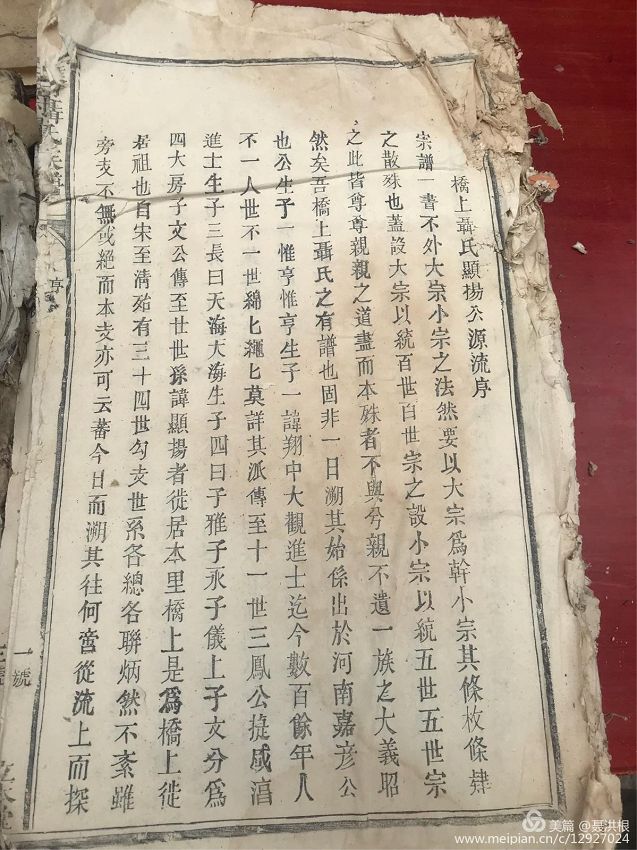 橋上聶氏顯揚公源流序
宗譜一書不外大宗小宗之法然要以大宗爲幹小宗其條枚條肄
之散殊也蓋設大宗以統百世百世宗之設小宗以統五世五世宗
之此皆尊尊親親之道盡而本殊者不與兮親不遺一族之大義昭
然矣吾橋上聶氏之有譜也固非一日溯其始係出於河南嘉彦公
也公生子一惟亨惟亨生子一諱翔中大觀進士迄今數百餘年人
不一人世不一世綿匕繩匕莫詳其派傳至十一世三鳳公捷咸淳
進士生子三長曰天海大海生子四曰子雅子永子儀上子文分爲
四大房子文公傳至廿世孫諱顯揚者徙居本里橋上是爲橋上徙
居祖也自宋至清殆有三十四世勾支世系各總各聯炳然不紊雖
旁支不無或絕而本支亦可云蕃今日而溯其往何啻從流上而探
聶氏族譜
序
一號
美篇 @聂洪根
www.meipian.cn/c/12927024